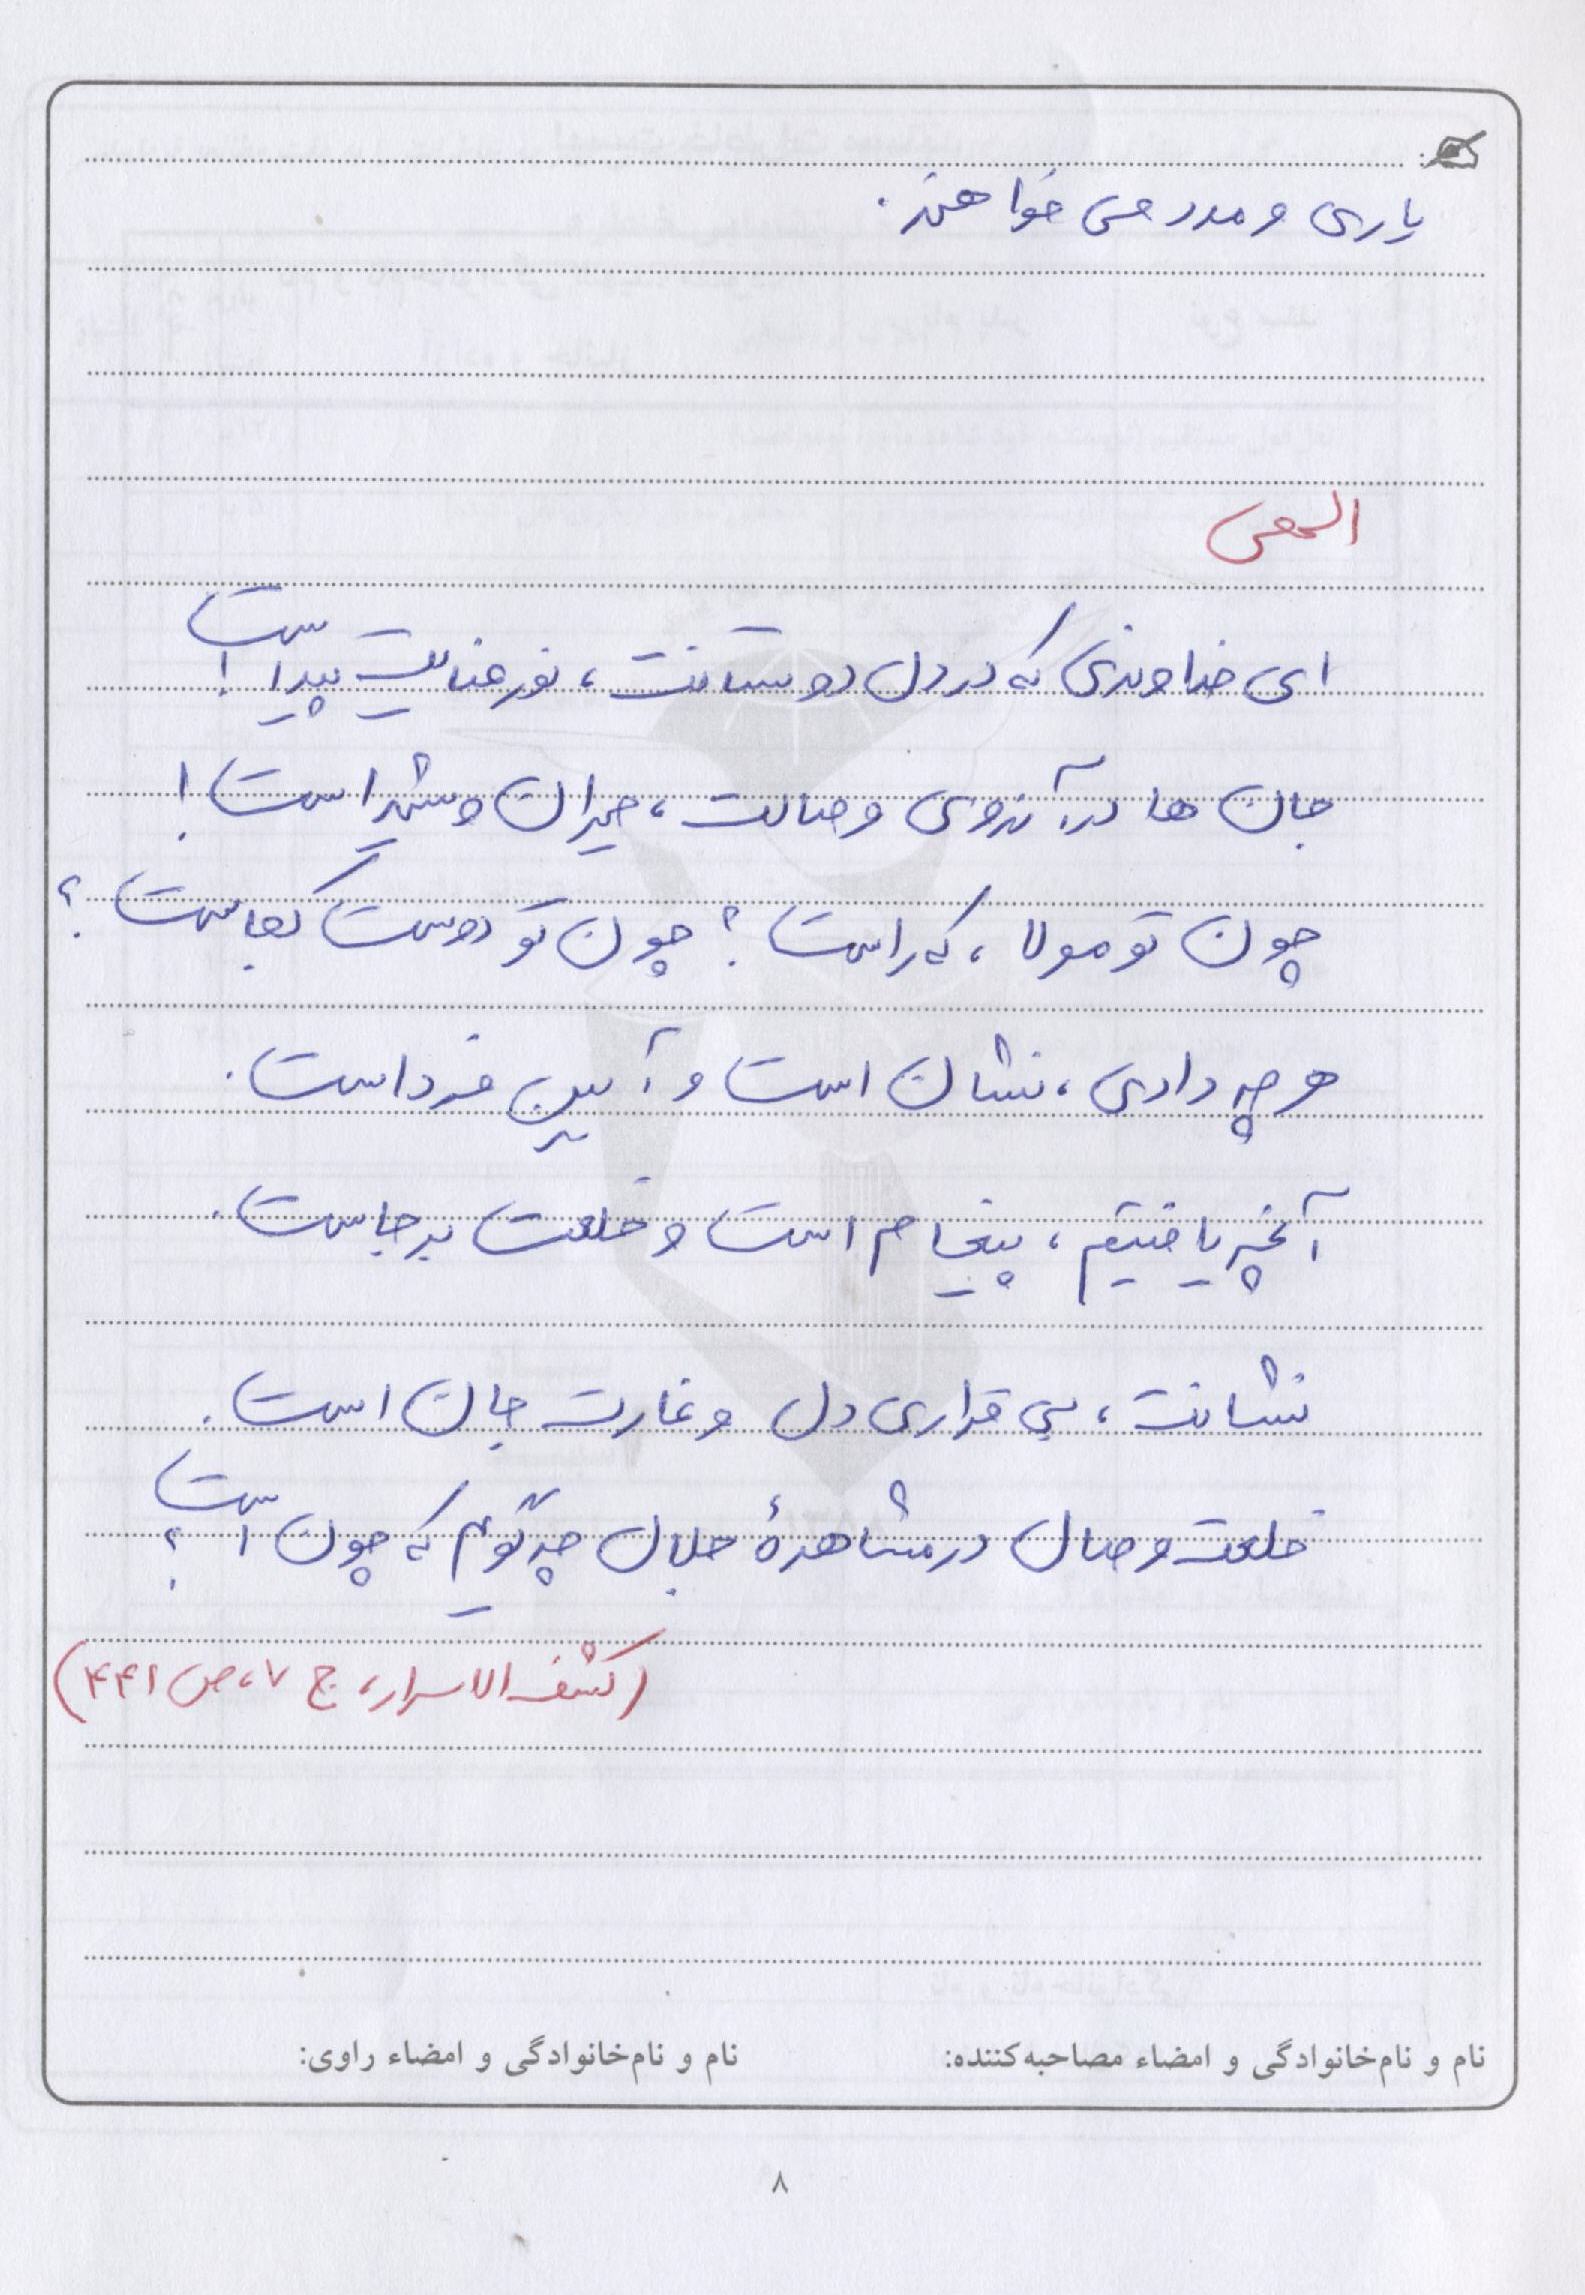 یاری و مدد می خواهند.
الهی
ای خداوندی که در دل دوستانت، نور عنایت پیداست!
جان ها در آرزوی وصالت، حیران و شیداست!
چون تو مولا، که راست؟ چون تو دوست کجاست؟
هر چه دادی، نشان است و آیین فرداست.
آنچه یافتیم، پیغام است و خلعت برجاست.
نشانت، بی قراری دل و غارت جان است.
خلعت وصال در مشاهدهٔ جلال چه گویم که چون است؟
(کشف الاسرار، ج ۷، ص ۴۴۱)
نام و نام‌خانوادگی و امضاء مصاحبه‌کننده: نام و نام‌خانوادگی و امضاء راوی:
۸